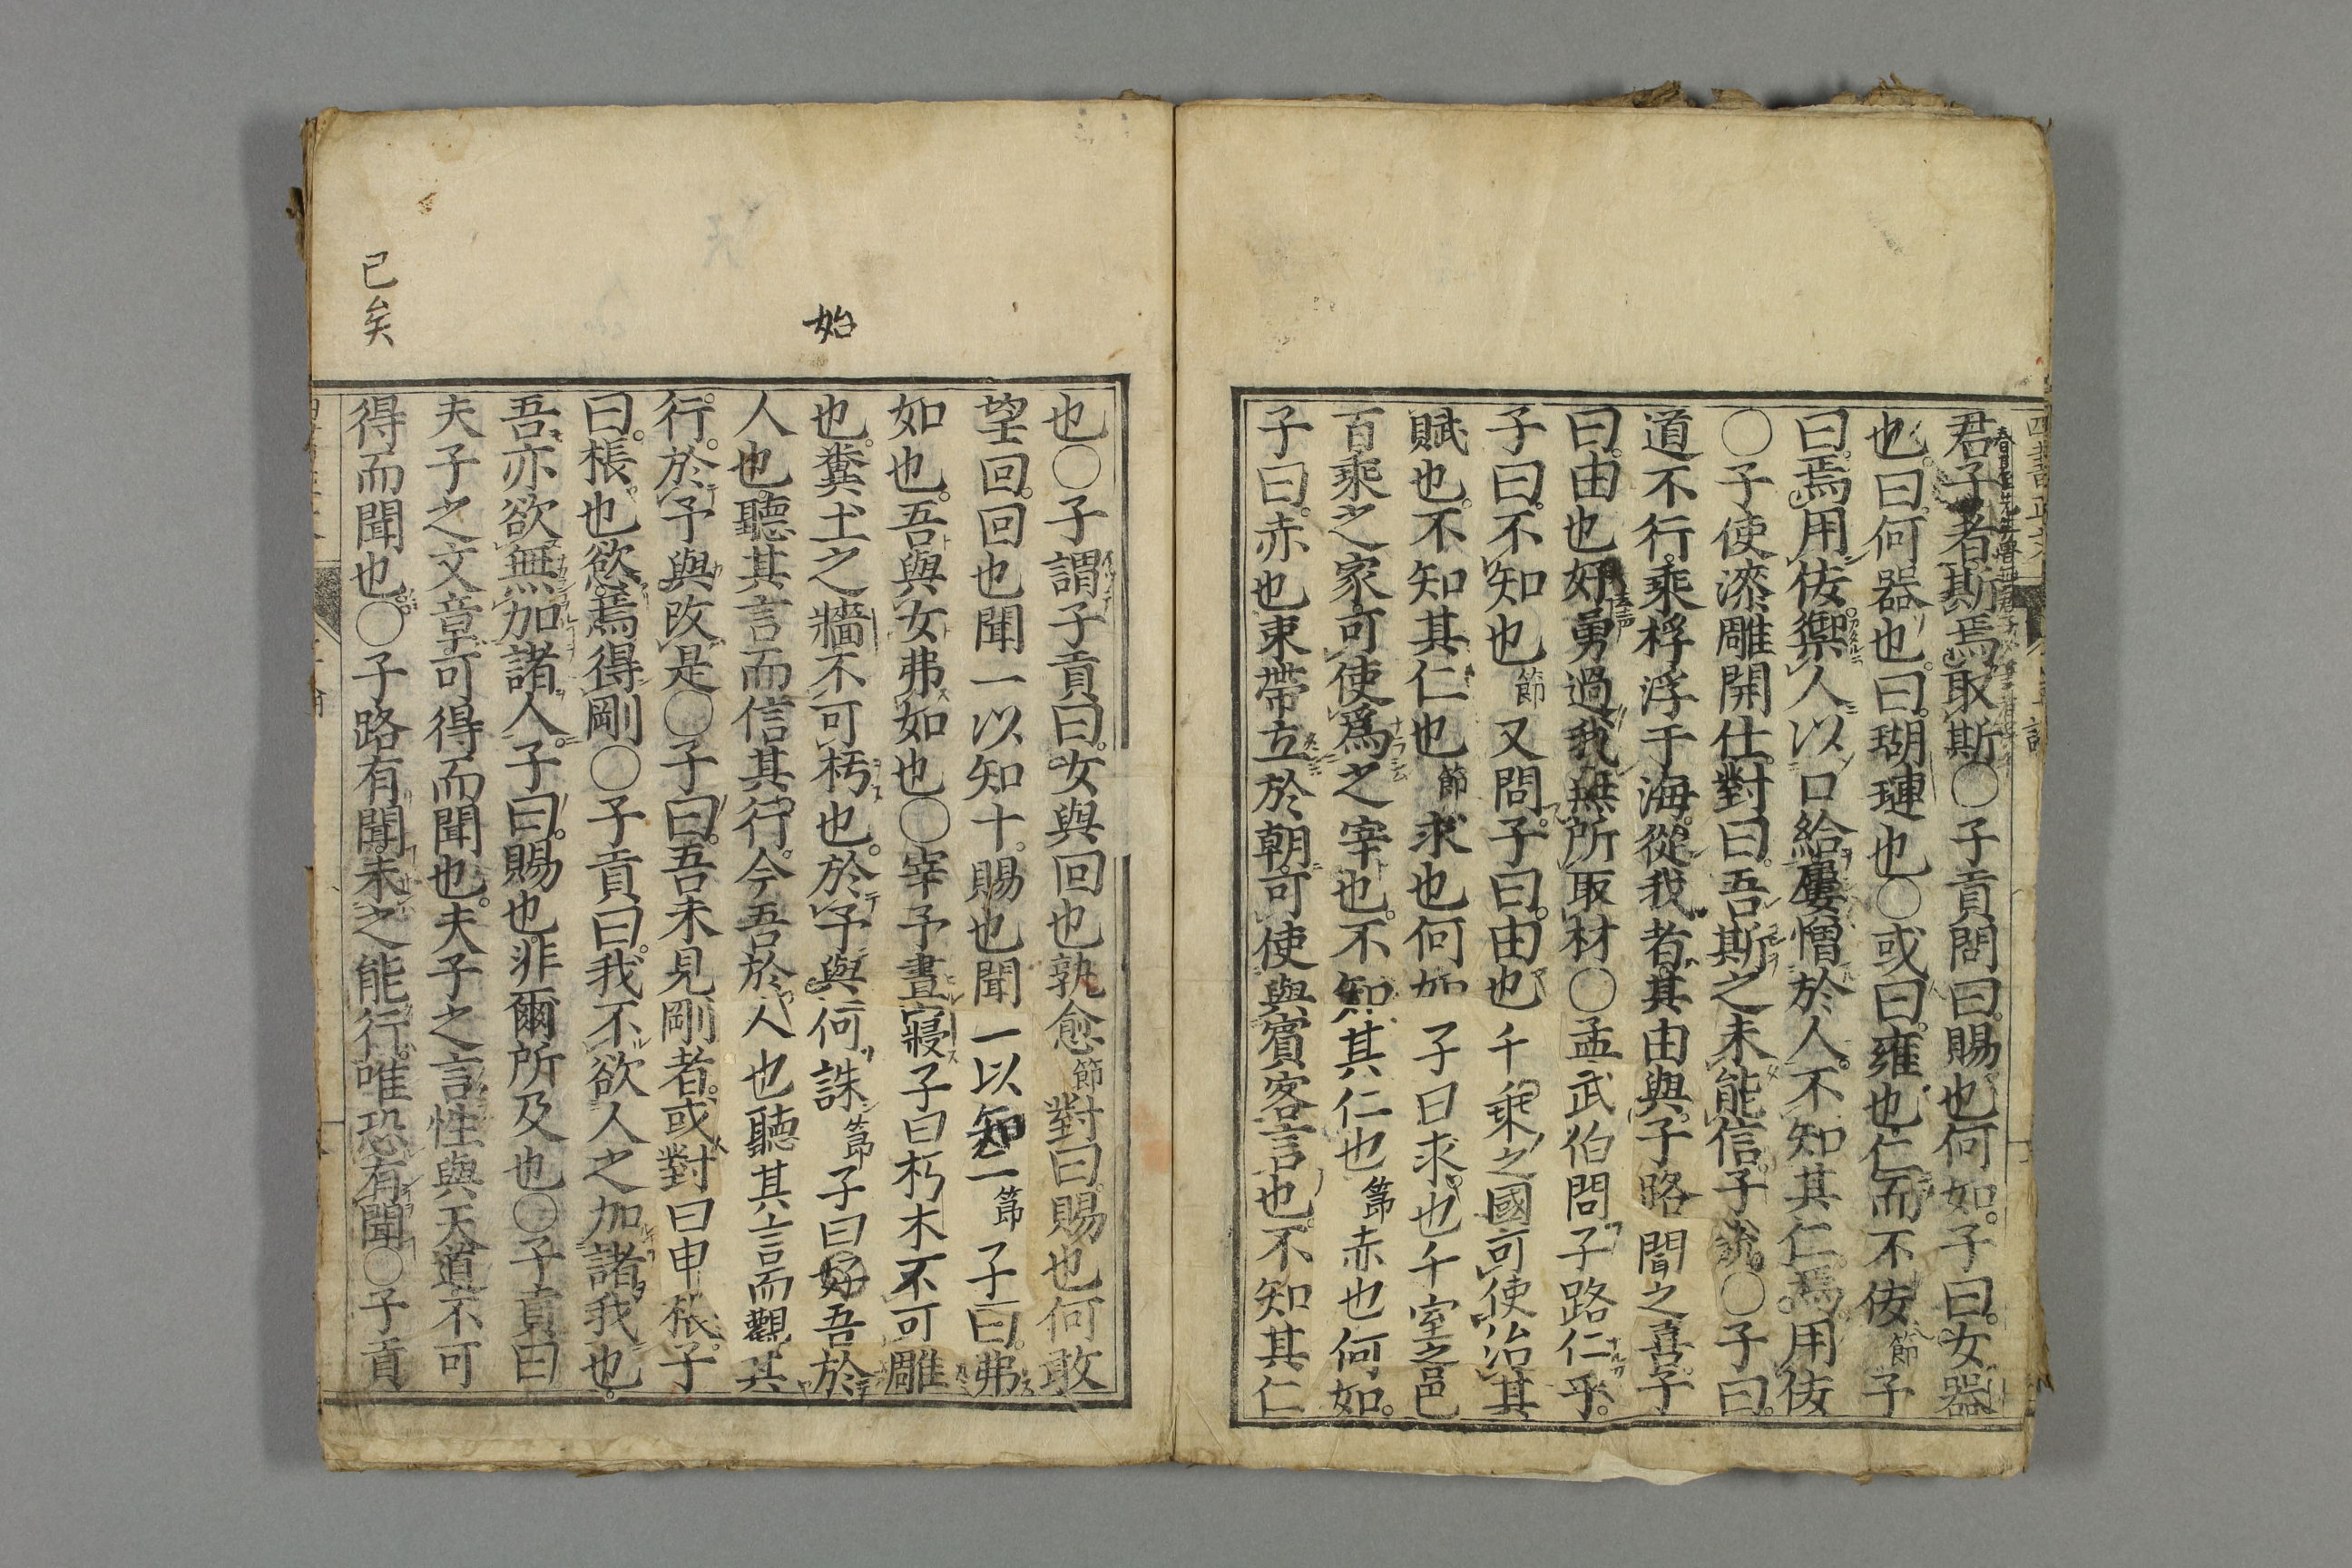 君子者斯焉取斯〇子貢問曰賜也何如子曰女器
也曰何器也曰瑚璉也〇或曰雍也仁而不佞節子
曰焉用佞禦人以口給屢憎於人不知其仁焉用佞
〇子使漆雕開仕對曰吾斯之未能信子說〇子曰
道不行乘桴浮于海從我者其由與子路聞之喜子
曰由也好勇過我無所取材〇孟武伯問子路仁乎
子曰不知也節又問子曰由也千乘之國可使治其
賦也不知其仁也節求也何如子曰求也千室之邑
百乘之家可使爲之宰也不知其仁也節赤也何如
子曰赤也束帶立於朝可使與賓客言也不知其仁
也〇子謂子貢曰女與回也孰愈節對曰賜也何敢
望回回也聞一以知十賜也聞一以知二節子曰弗
如也吾與女弗如也〇宰予晝寢子曰朽木不可雕
也糞土之牆不可杇也於予與何誅節子曰始吾於
人也聽其言而信其行今吾於人也聽其言而觀其
行於予與改是〇子曰吾未見剛者或對曰申棖子
曰棖也慾焉得剛〇子貢曰我不欲人之加諸我也
吾亦欲無加諸人子曰賜也非爾所及也〇子貢曰
夫子之文章可得而聞也夫子之言性與天道不可
得而聞也〇子路有聞未之能行唯恐有聞〇子貢
始
已矣